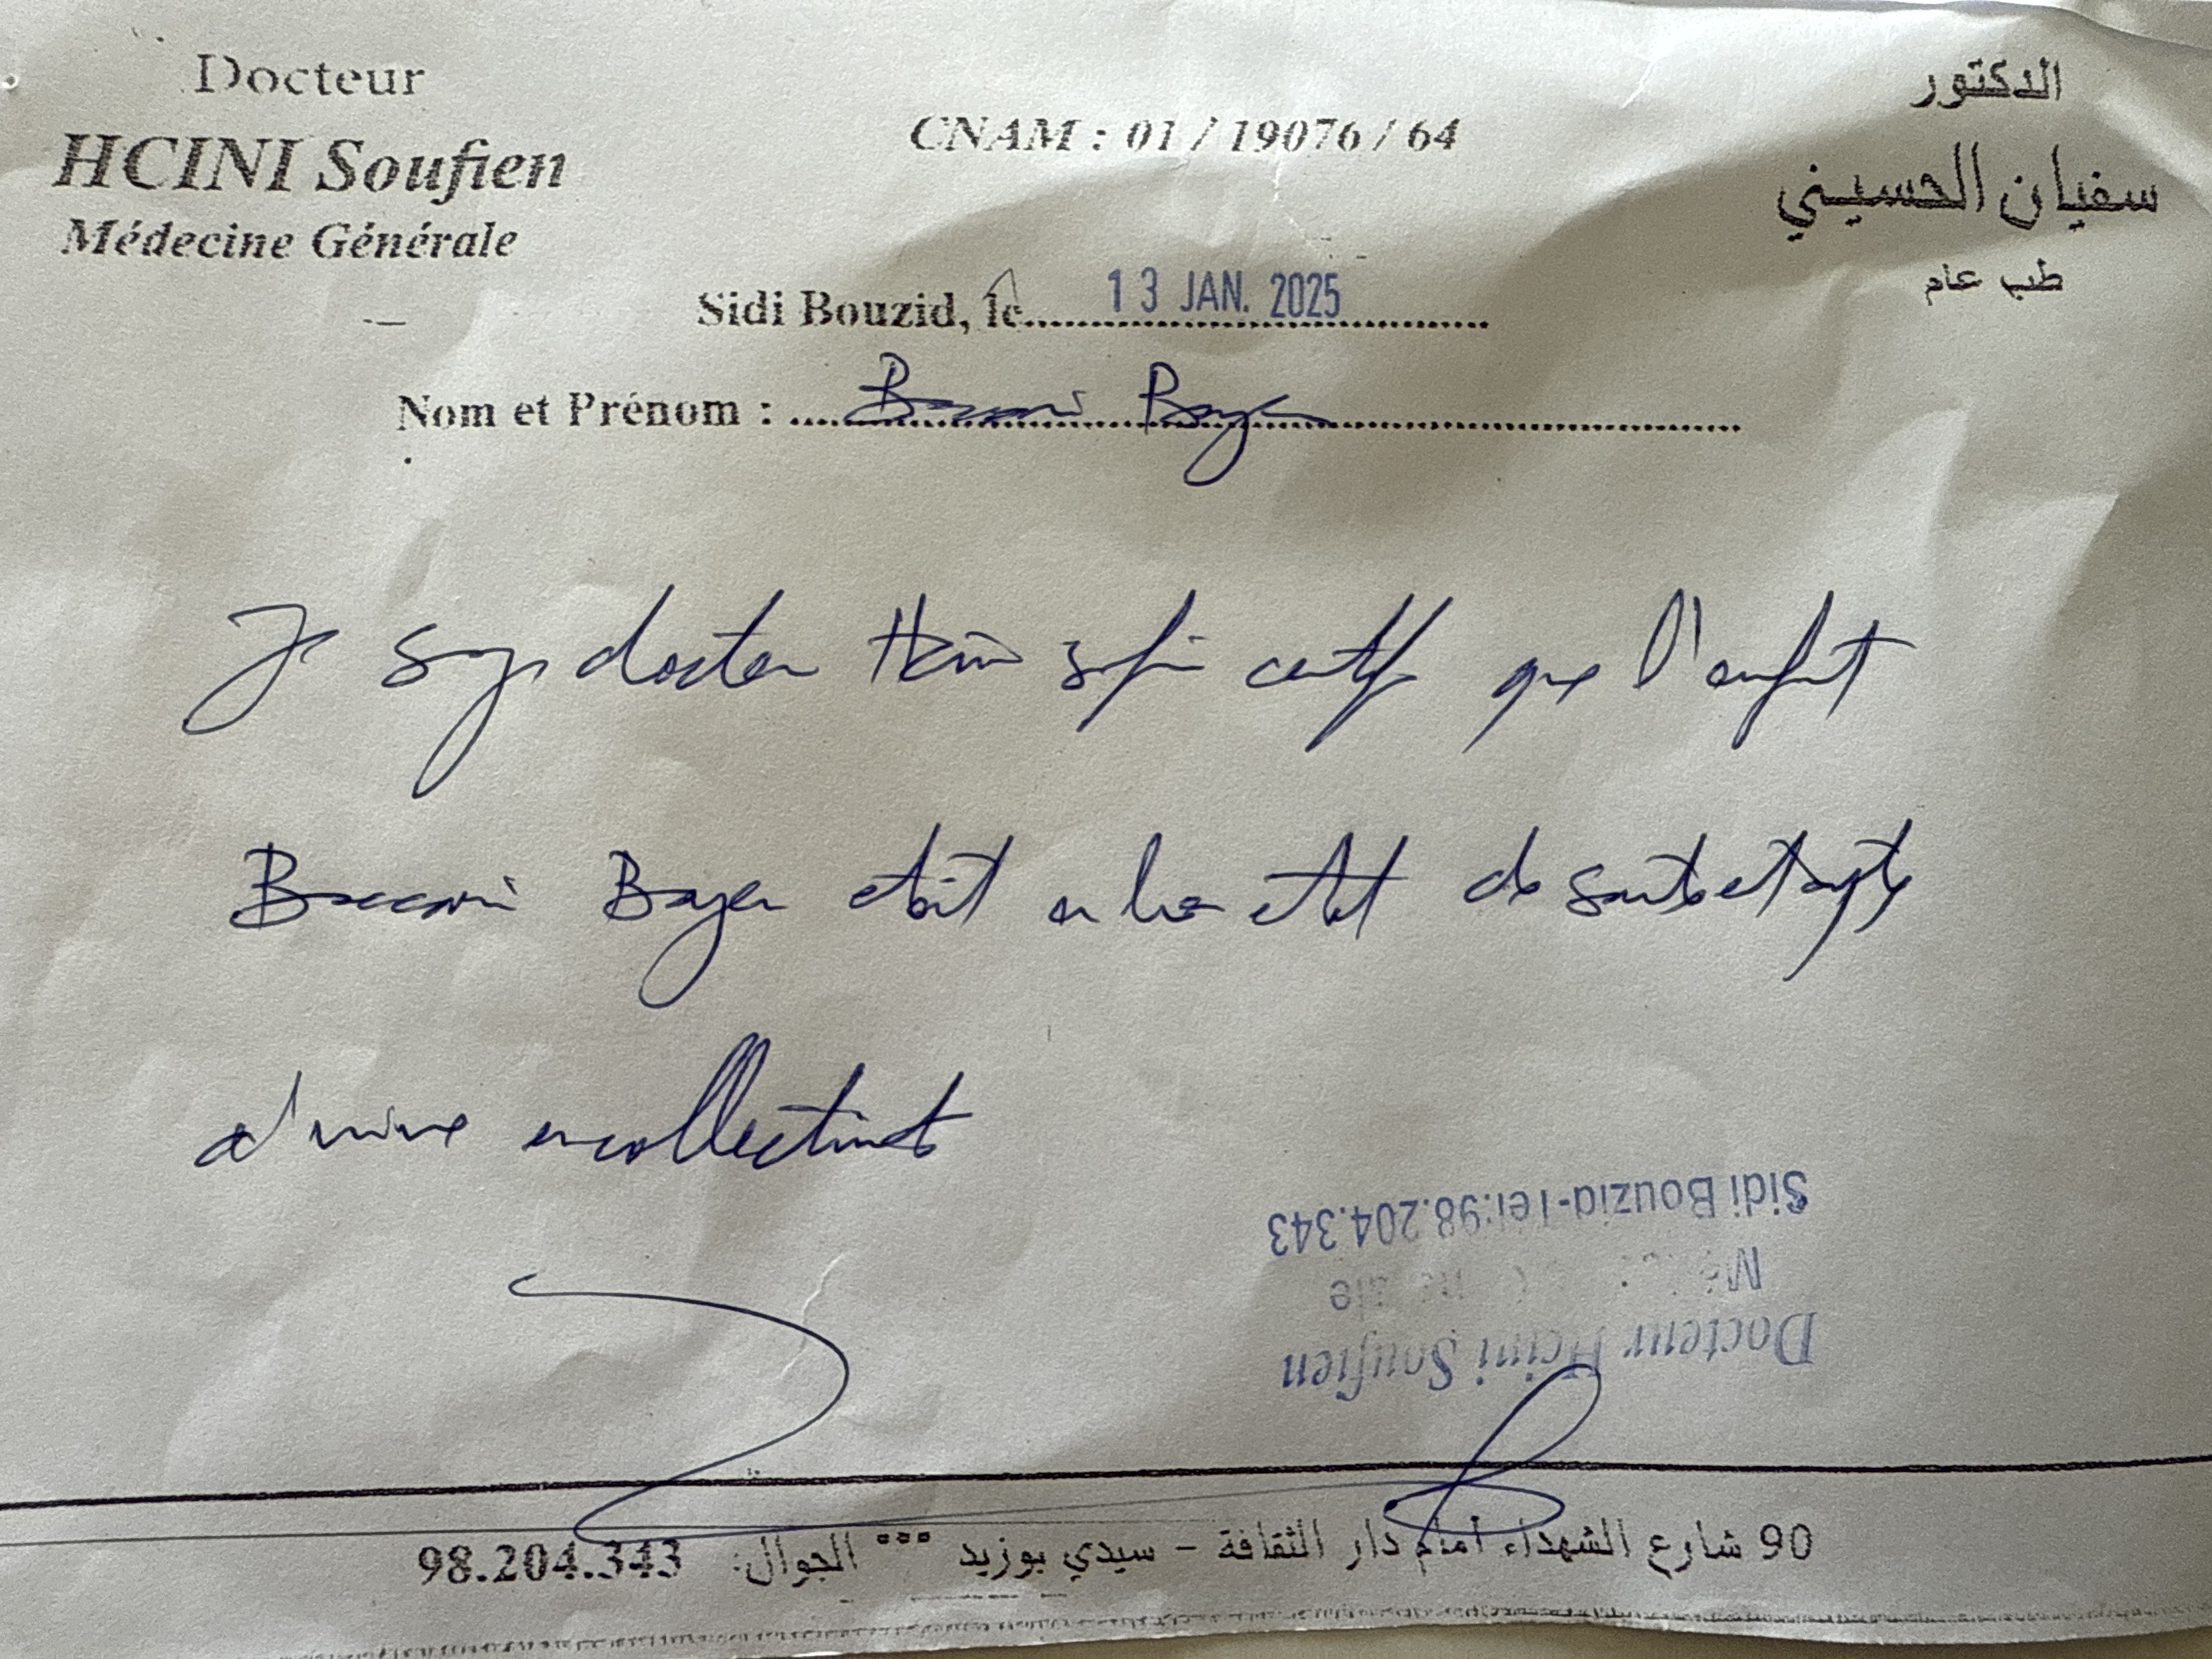 Docteur
HCINI Soufien
Médecine Générale
CNAM : 01 / 19076 / 64
الدكتور
سفيان الحسيني
طب عام
Sidi Bouzid, le 13 JAN. 2025
Nom et Prénom :
Je docteur Hcini certifie que l'enfant
etait en bon etat de sante et apte
a vivre en collectivité
Docteur Hcini Soufien
Sidi Bouzid-Tel:98.204.343
90 شارع الشهداء أمام دار الثقافة - سيدي بوزيد °°° الجوال: 98.204.343